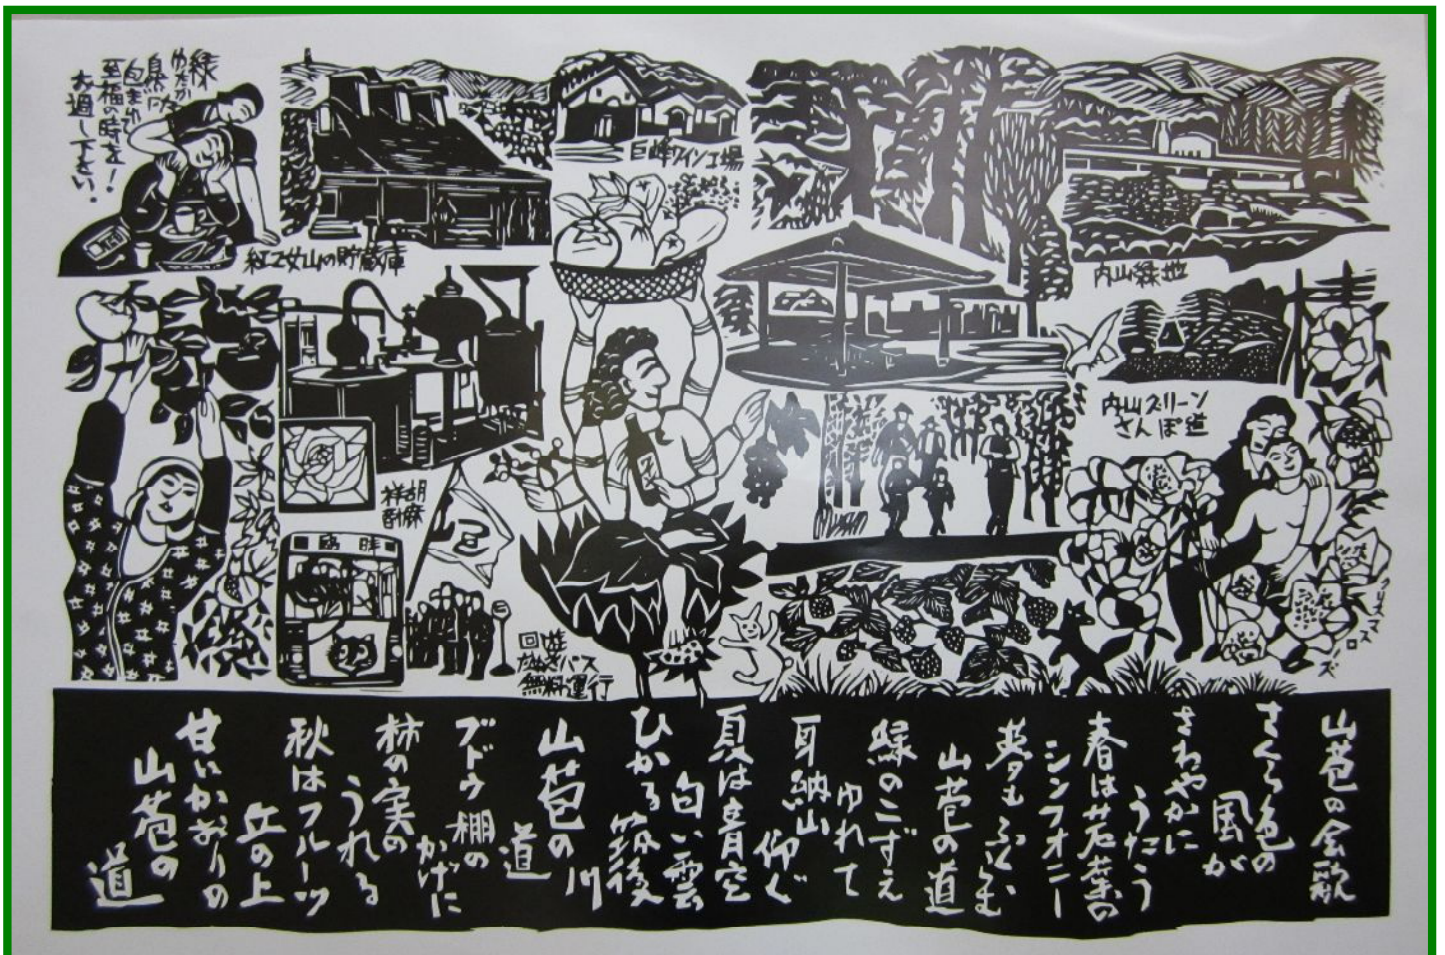 緑
ゆたかな
至福の時を!
お過し下さい。
紅乙女山の貯蔵庫
巨峰ワイン工場
内山緑地
内山グリーン
さんぽ道
胡麻
祥酎
臨時
回遊
たぬきバス
無料運行
クリスマスローズ
山苞の会歌
さくら色の
風が
さわやかに
うたう
春は若葉の
シンフオニー
夢もふくらむ
山苞の道
緑のこずえ
ゆれて
耳納山
仰ぐ
夏は青空
白い雲
ひかる筑後
川
山苞の
道
ブドウ棚の
かげに
柿の実の
うれる
秋はフルーツ
丘の上
甘いかおりの
山苞の
道